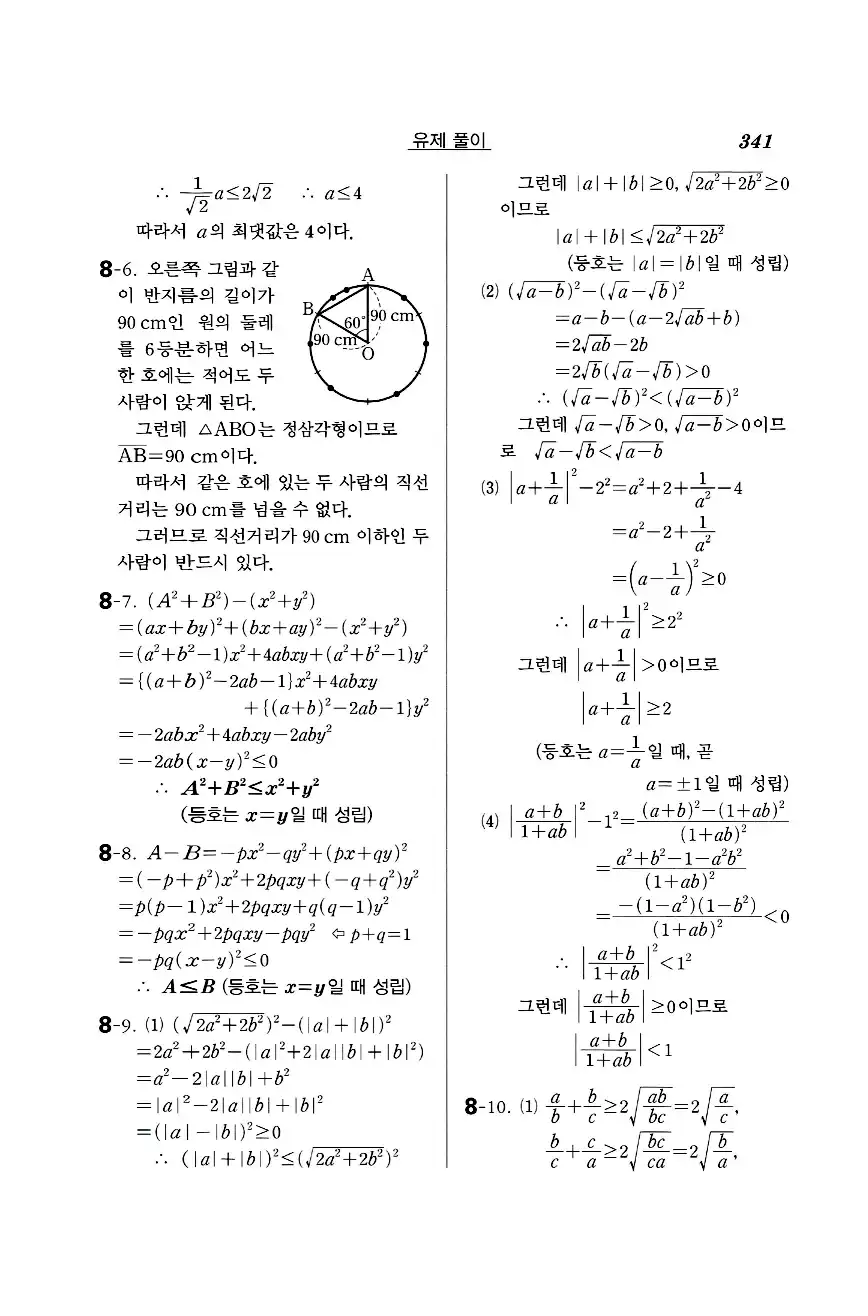 유제 풀이 341
∴ 1/√2 a≤2√2 ∴ a≤4
따라서 a의 최댓값은 4이다.
8-6. 오른쪽 그림과 같
이 반지름의 길이가
90 cm인 원의 둘레
를 6등분하면 어느
한 호에는 적어도 두
사람이 앉게 된다.
A
B
60°
90 cm
90 cm
O
그런데 △ABO는 정삼각형이므로
A̅B̅=90 cm이다.
따라서 같은 호에 있는 두 사람의 직선
거리는 90 cm를 넘을 수 없다.
그러므로 직선거리가 90 cm 이하인 두
사람이 반드시 있다.
8-7. (A²+B²)-(x²+y²)
=(ax+by)²+(bx+ay)²-(x²+y²)
=(a²+b²-1)x²+4abxy+(a²+b²-1)y²
={(a+b)²-2ab-1}x²+4abxy
+{(a+b)²-2ab-1}y²
=-2abx²+4abxy-2aby²
=-2ab(x-y)²≤0
∴ A²+B²≤x²+y²
(등호는 x=y일 때 성립)
8-8. A-B=-px²-qy²+(px+qy)²
=(-p+p²)x²+2pqxy+(-q+q²)y²
=p(p-1)x²+2pqxy+q(q-1)y²
=-pqx²+2pqxy-pqy² ⇦ p+q=1
=-pq(x-y)²≤0
∴ A≤B (등호는 x=y일 때 성립)
8-9. (1) (√(2a²+2b²))²-(|a|+|b|)²
=2a²+2b²-(|a|²+2|a||b|+|b|²)
=a²-2|a||b|+b²
=|a|²-2|a||b|+|b|²
=(|a|-|b|)²≥0
∴ (|a|+|b|)²≤(√(2a²+2b²))²
그런데 |a|+|b|≥0, √(2a²+2b²)≥0
이므로
|a|+|b|≤√(2a²+2b²)
(등호는 |a|=|b|일 때 성립)
(2) (√(a-b))²-(√a-√b)²
=a-b-(a-2√(ab)+b)
=2√(ab)-2b
=2√b(√a-√b)>0
∴ (√a-√b)²<(√(a-b))²
그런데 √a-√b>0, √(a-b)>0이므
로 √a-√b<√(a-b)
(3) |a+1/a|²-2²=a²+2+1/a²-4
=a²-2+1/a²
=(a-1/a)²≥0
∴ |a+1/a|²≥2²
그런데 |a+1/a|>0이므로
|a+1/a|≥2
(등호는 a=1/a일 때, 곧
a=±1일 때 성립)
(4) |(a+b)/(1+ab)|²-1²=((a+b)²-(1+ab)²)/(1+ab)²
=(a²+b²-1-a²b²)/(1+ab)²
=(-(1-a²)(1-b²))/(1+ab)²<0
∴ |(a+b)/(1+ab)|²<1²
그런데 |(a+b)/(1+ab)|≥0이므로
|(a+b)/(1+ab)|<1
8-10. (1) a/b+b/c≥2√(ab/bc)=2√(a/c),
b/c+c/a≥2√(bc/ca)=2√(b/a),